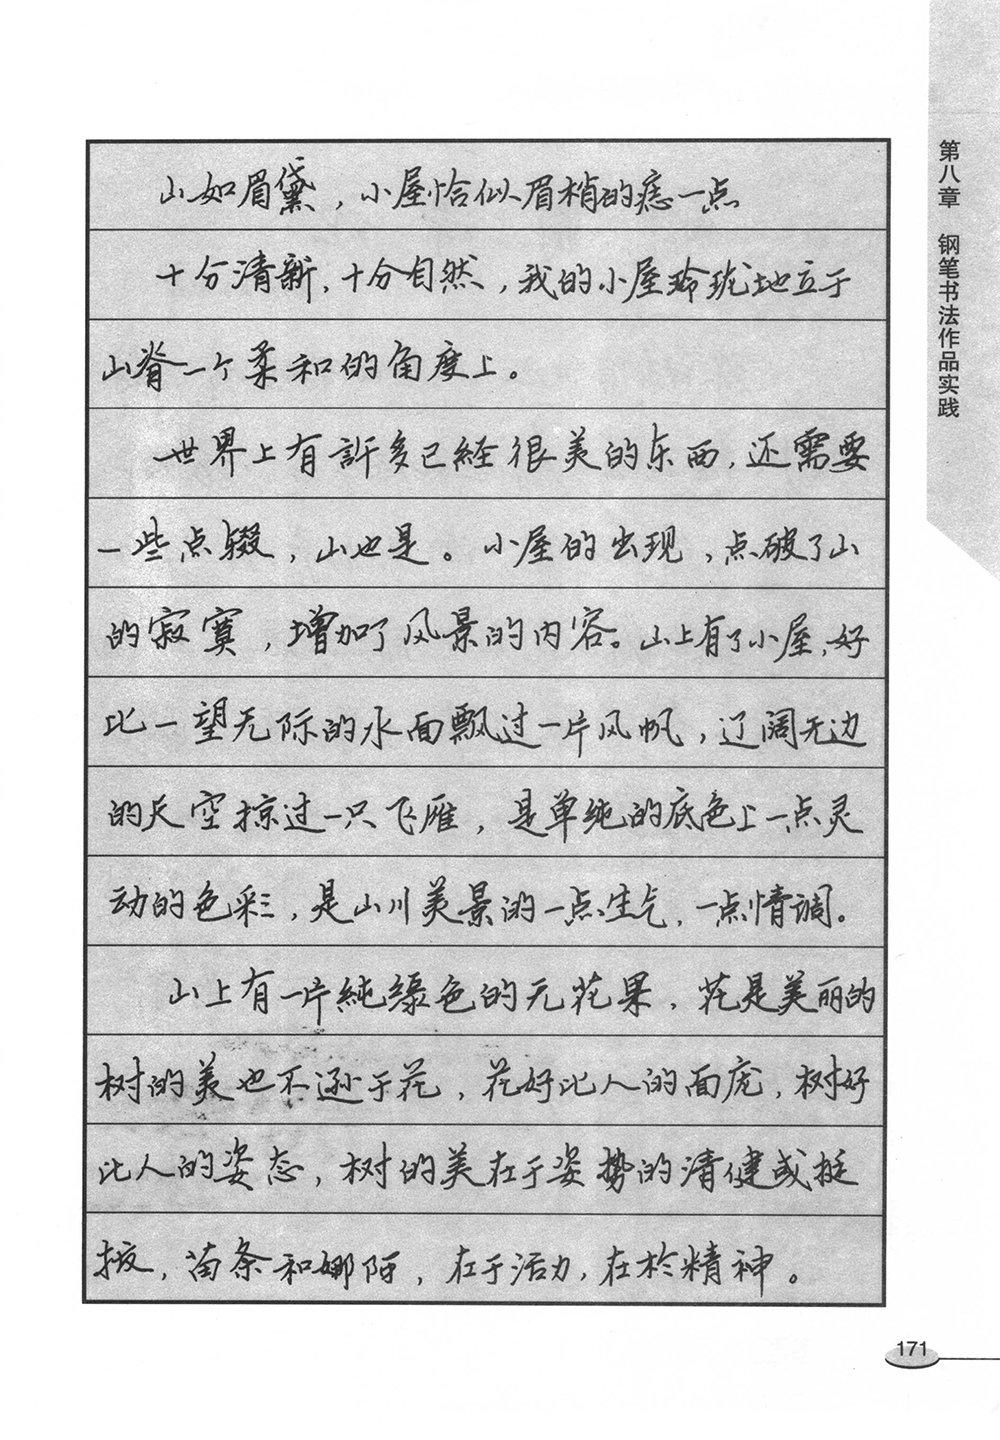 山如眉黛，小屋恰似眉梢的痣一点
十分清新，十分自然，我的小屋玲珑地立于
山脊一个柔和的角度上。
世界上有許多已経很美的东西，还需要
一些点辍，山也是。小屋的出现，点破了山
的寂寞，增加了风景的内容。山上有了小屋，好
比一望无际的水面飘过一片风帆，辽阔无边
的天空掠过一只飞雁，是单纯的底色上一点灵
动的色彩，是山川美景的一点生气，一点情调。
山上有一片純绿色的无花果，花是美丽的
树的美也不逊于花，花好比人的面庞，树好
比人的姿态，树的美在于姿势的清健或挺
拔，苗条和娜阿，在于活力，在於精神。
第八章 钢笔书法作品实践
171